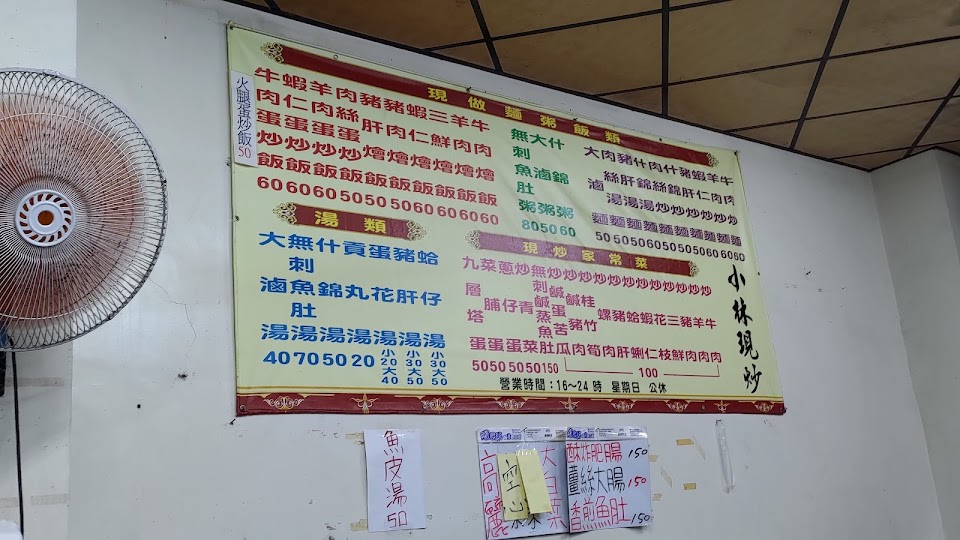 現做麵粥飯類
火腿蛋炒飯50
牛肉蛋炒飯60
蝦仁蛋炒飯60
羊肉蛋炒飯60
肉絲蛋炒飯50
豬肝燴飯50
豬肉燴飯50
蝦仁燴飯60
三鮮燴飯60
羊肉燴飯60
牛肉燴飯60
無刺魚肚粥80
大滷粥50
什錦粥60
大滷麵50
肉絲湯麵50
豬肝湯麵50
什錦湯麵60
肉絲炒麵50
什錦炒麵50
豬肝炒麵50
蝦仁炒麵60
羊肉炒麵60
牛肉炒麵60
湯類
大滷湯40
無刺魚肚湯70
什錦湯50
貢丸湯20
蛋花湯小20大40
豬肝湯小30大50
蛤仔湯小30大50
現炒家常菜
九層塔蛋50
菜脯蛋50
蔥仔蛋50
炒青菜50
無刺鹹蒸魚肚150
炒鹹蛋苦瓜
炒鹹豬肉
炒桂竹筍
炒螺肉
炒豬肝
炒蛤蜊
炒蝦仁
炒花枝
炒三鮮
炒豬肉
炒羊肉
炒牛肉
100
營業時間：16～24時 星期日 公休
小林現炒
魚皮湯50
空心
酥炸肥腸150
薑絲大腸150
香煎魚肚150